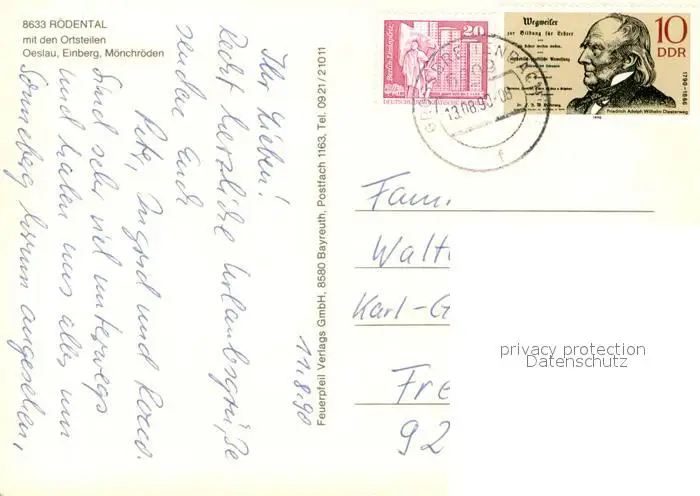 8633 RÖDENTAL
mit den Ortsteilen
Oeslau, Einberg, Mönchröden
Ihr Lieben!
Recht herzliche Urlaubsgrüße
senden Euch
Ingrid und
Sind sehr viel unterwegs
und haben uns alles um
Sonneberg herum angesehen,
11.8.90
Feuerpfeil Verlags GmbH, 8580 Bayreuth, Postfach 1163, Tel. 0921/21011
Berlin, Leninplatz
20
DEUTSCHE DEMOKRATISCHE REPUBLIK
Wegweiser
zur Bildung für Lehrer
10
DDR
1790-1866
Friedrich Adolph Wilhelm Diesterweg
1990
13.08.90
f
Fam.
Walt
Karl-G
Fre
92
privacy protection
Datenschutz